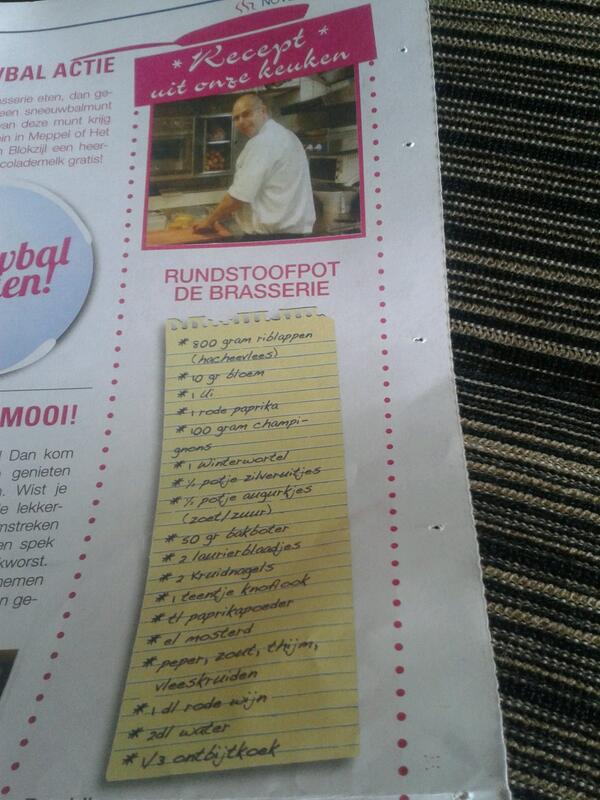 NOV
VBAL ACTIE
asserie eten, dan ge-
een sneeuwbalmunt
van deze munt krijg
ein in Meppel of Het
n Blokzijl een heer-
colademelk gratis!
* Recept *
uit onze keuken
wbal
en!
RUNDSTOOFPOT
DE BRASSERIE
* 800 gram riblappen
(hacheevlees)
* 10 gr bloem
* 1 Ui
* 1 rode paprika
* 100 gram champi-
gnons
* 1 winterwortel
* ½ potje zilveruitjes
* ½ potje augurkjes
(zoet/zuur)
* 50 gr bakboter
* 2 laurierblaadjes
* 2 Kruidnagels
* 1 teentje knoflook
* tl paprikapoeder
* el mosterd
* peper, zout, thijm,
vleeskruiden
* 1 dl rode wijn
* 2dl water
* 1/3 ontbijtkoek
MOOI!
! Dan kom
genieten
n. Wist je
le lekker-
mstreken
en spek
kworst.
nemen
n ge-